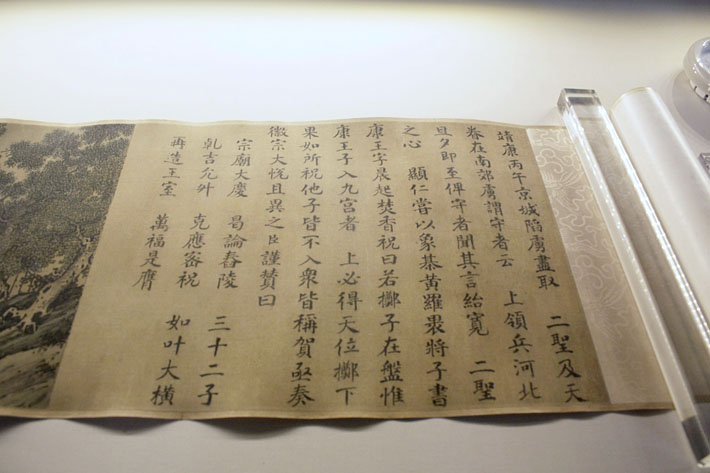 靖康丙午京城陷虜盡取 二聖及天
眷在南郊虜謂守者云 上領兵河北
旦夕即至俾守者聞其言紿寬 二聖
之心 顯仁嘗以象棊黃羅裹將子書
康王字晨起焚香祝曰若擲子在盤惟
康王子入九宮者 上必得天位擲下
果如所祝他子皆不入衆皆稱賀亟奏
徽宗大悅且異之臣謹贊曰
宗廟大慶 曷論舂陵 三十二子
吉允 克應密祝 如叶大橫
再造王室 萬福是膺